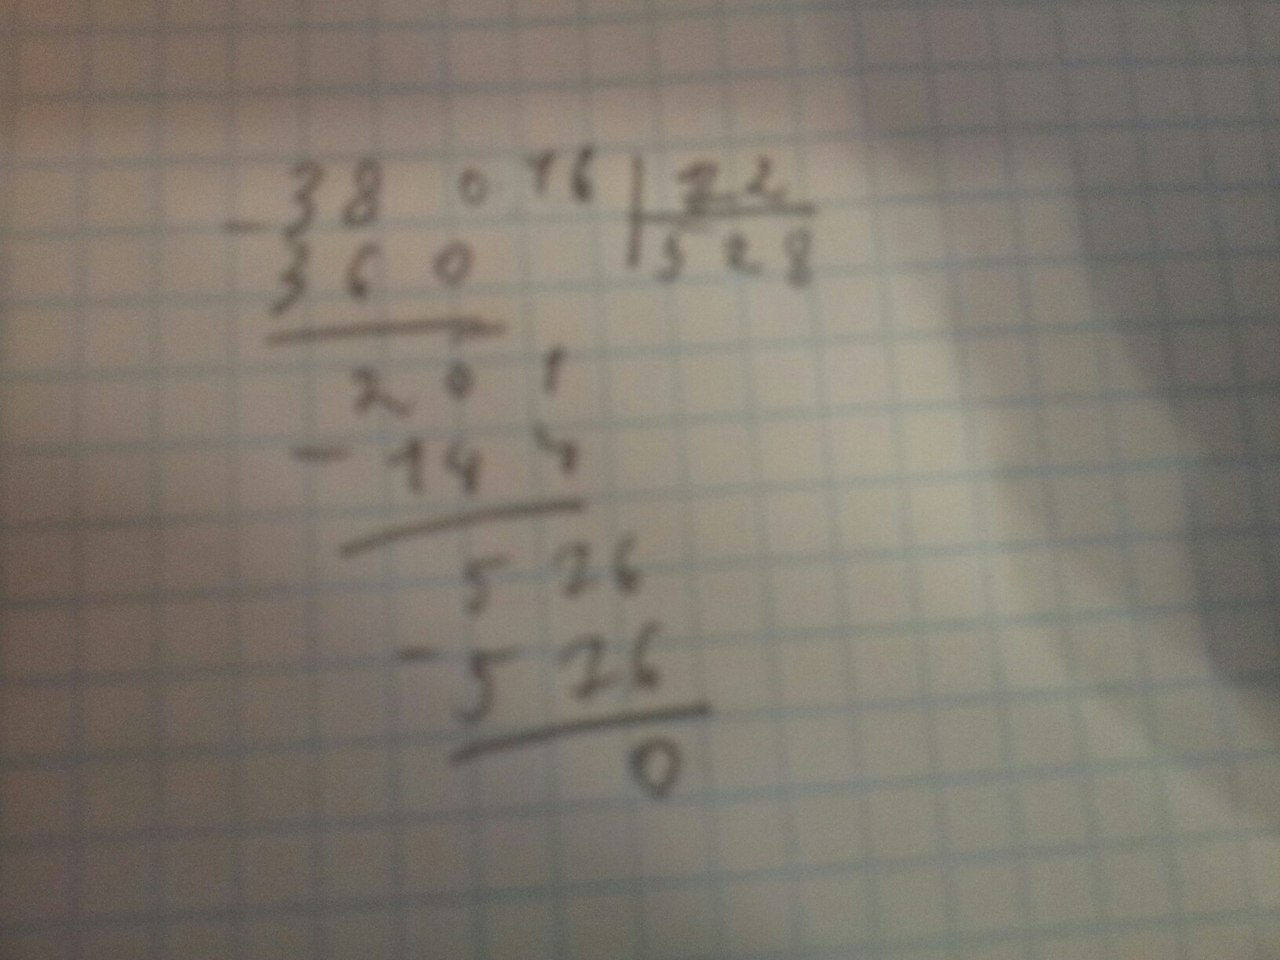 - 38 0 16 | 72
360 | 528
201
- 144
526
- 526
0